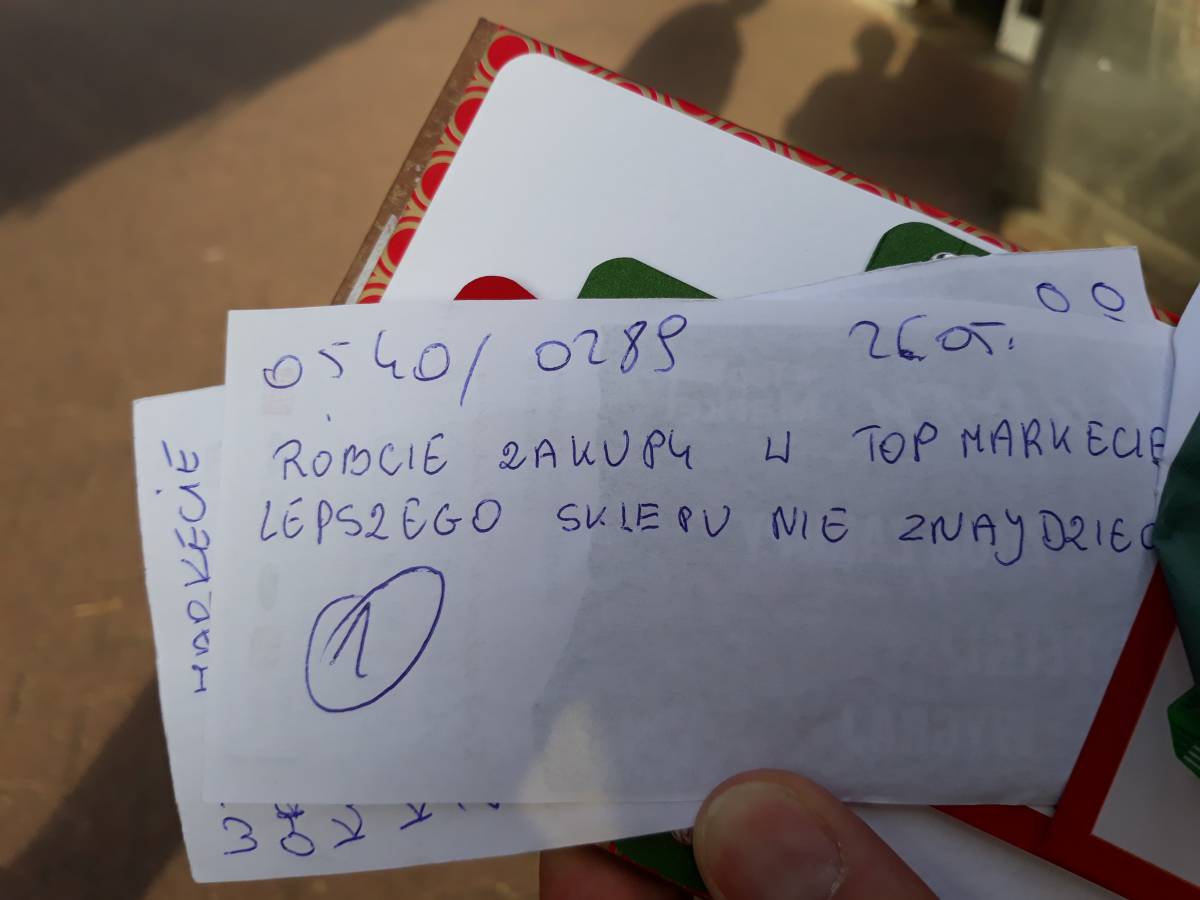 0540/ 0289 26 05.
RÓBCIE ZAKUPY W TOP MARKECIE
LEPSZEGO SKLEPU NIE ZNAYDZIEC
1
MARKECIE